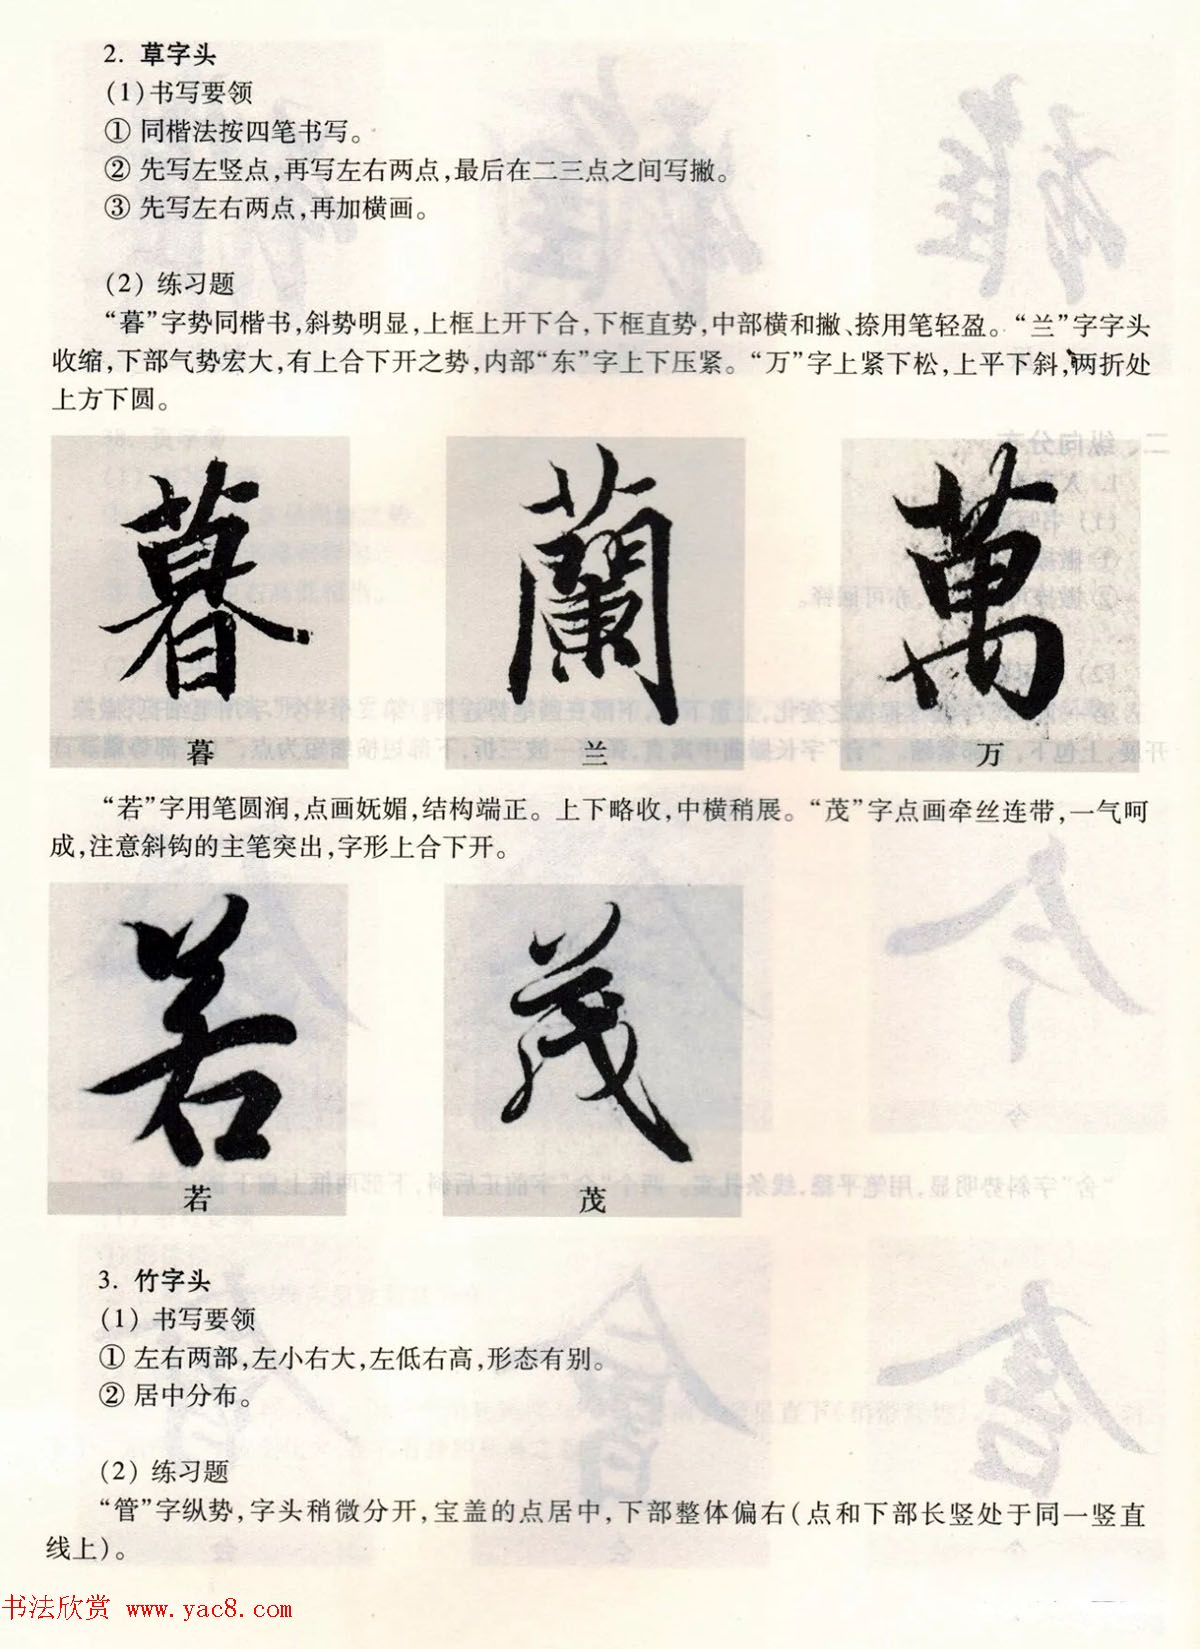 2. 草字头
(1)书写要领
① 同楷法按四笔书写。
② 先写左竖点,再写左右两点,最后在二三点之间写撇。
③ 先写左右两点,再加横画。
(2) 练习题
“暮”字势同楷书,斜势明显,上框上开下合,下框直势,中部横和撇、捺用笔轻盈。“兰”字字头
收缩,下部气势宏大,有上合下开之势,内部“东”字上下压紧。“万”字上紧下松,上平下斜,两折处
上方下圆。
暮 蘭 萬
暮 兰 万
“若”字用笔圆润,点画妩媚,结构端正。上下略收,中横稍展。“茂”字点画牵丝连带,一气呵
成,注意斜钩的主笔突出,字形上合下开。
若 茂
若 茂
3. 竹字头
(1) 书写要领
① 左右两部,左小右大,左低右高,形态有别。
② 居中分布。
(2) 练习题
“管”字纵势,字头稍微分开,宝盖的点居中,下部整体偏右(点和下部长竖处于同一竖直
线上)。
书法欣赏 www.yac8.com